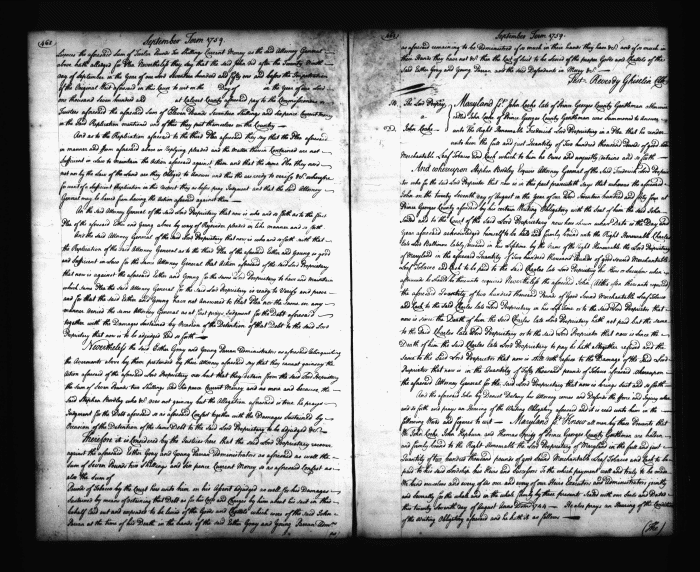 461
September Term 1759.
Licences the aforesaid Sum of Twelve Pounds Ten Shillings Current Money as the said Attorney General
above hath alledged for Plea thereupon they say that the said John after the Twenty
day of September in the Year of our Lord Seventeen hundred and fifty one and before the Impetration
of the Original Writ aforesaid in this Court to wit on the Day of in the Year of our Lord
one thousand seven hundred and at Calvert County aforesaid paid to the
Current Money
in the said Replication mentioned
And as to the Replication aforesaid to the third Plea aforesaid they say that the Plea aforesaid
in manner and form aforesaid above in Replying pleaded and the Matter therein Contained are not
sufficient in Law to maintain the Action aforesaid against them and that the same they need
not nor by the Law of the Land are they Obliged to Answer and this they are ready to verify Wherefore
for want of a Sufficient Replication in this respect they as before pray Judgment and that the said Attorney
General may be barr'd from having the Action aforesaid against them
And the said Attorney General of the said Lord Proprietary that now is who and so forth as to the first
Plea of the aforesaid Esther and Young above by way of Rejoinder pleaded in like manner and so forth
And the said Attorney General of the said Lord Proprietary that now is who and so forth saith that
the Replication of the said Attorney General as to the third Plea of the aforesaid Esther and Young is good
and sufficient in Law for the said Attorney General that Action aforesaid of the said Lord Proprietary
that now is against the aforesaid Esther and Young for the said Lord Proprietary to have and maintain
which same Plea the said Attorney General for the said Lord Proprietary is ready to Verify and prove
and for that the said Esther and Young have not answered to that Plea nor the same in any
manner denied the same Attorney General as at first prays Judgment for the Debt aforesaid
together with the Damages sustained by reason of the Detention of that Debt to the said Lord
Proprietary that now is to be adjudged and so forth
Nevertheless the said Esther Gray and Young Parran Administrators as aforesaid relinquishing
the Averments above by them pretended by their Attorney aforesaid say that they cannot gainsay the
Action aforesaid of the aforesaid Lord Proprietary nor but that they detain from the said Lord Proprietary
the sum of Seven Pounds ten Shillings and Six pence Current Money and no more and because the
said Stephen Bordley who &c. does not gainsay but the Allegation aforesaid is true he prays
Judgment for the Debt aforesaid so as aforesaid Confest together with the Damages Sustained by
Occasion of the Detention of the same Debt to the said Lord Proprietary to be adjudged &c.
Therefore it is Considered by the Justices here that the said Lord Proprietary recover
against the aforesaid Esther Gray and Young Parran Administrators as aforesaid as well the
Sum of Seven Pounds ten Shillings and Six pence Current Money so as aforesaid Confest as
also the Sum of
Pounds of Tobacco by the Court here unto him on his Assent adjudged as well for his Damages
sustained by means of detaining that Debt as for his Costs and Charges by him about his suit in this
behalf laid out and expended to be levied of the Goods and Chattels which were of the said John
Parran at the time of his Death in the hands of the said Esther Gray and Young Parran
462
September Term 1759.
as aforesaid remaining to be Administred if so much in their hands they have &c. and if so much in
their hands they have not &c. then the Costs of Suit to be levied of the proper Goods and Chattels of the
said Esther Gray and Young Parran and the said Defendants in Mercy &c.
Test. Reverdy Ghiselin Clk.
The Lord Proprietary
a
John Cooke
Maryland ss. John Cooke late of Prince Georges County Gentleman otherwise
called John Cooke of Prince Georges County Gentleman was Summoned to answer
unto the Right Honourable Frederick Lord Proprietary in a Plea that he render
unto him the full and just Quantity of Two hundred thousand Pounds of good sound
Merchantable Leaf Tobacco and Cask which to him he Owes and unjustly detains and so forth
And whereupon Stephen Bordley Esquire Attorney General of the said Frederick Lord Proprietary
who for the said Lord Proprietor that now is in this part prosecuteth says that whereas the aforesaid
John on the twenty seventh day of August in the Year of our Lord Seventeen hundred and forty four at
Prince Georges County aforesaid by his certain Writing Obligatory with the Seal of him the said John
Sealed and to the Court of the said Lord Proprietary now here shewn whose date is the Day and
Year aforesaid acknowledged himself to be held and firmly bound unto the Right Honourable Charles
late Lord Baltimore lately deceased in his lifetime by the Name of the Right Honourable the Lord Proprietary
of Maryland in the aforesaid Quantity of Two hundred thousand Pounds of good sound Merchantable
Leaf Tobacco and Cask to be paid to the said Charles late Lord Proprietary his Heirs or Successors when
afterwards he should be thereunto required Nevertheless the aforesaid John altho often thereunto required
the aforesaid Quantity of Two hundred thousand Pounds of Good Sound Merchantable Leaf Tobacco
and Cask to the said Charles late Lord Proprietary in his life time or to the said Lord Proprietor that
now is since the Death of him the said Charles late Lord Proprietary hath not paid but the same
to the said Charles late Lord Proprietary or to the said Lord Proprietor that now is since the
Death of him the said Charles late Lord Proprietary to pay he hath altogether refused and the
same to the said Lord Proprietor that now is still doth refuse to the Damage of the said Lord
Proprietor that now is in the Quantity of fifty thousand pounds of Tobacco aforesaid whereupon
the aforesaid Attorney General for the said Lord Proprietary that now is brings suit and so forth
And the aforesaid John by Daniel Dulany his Attorney comes and Defends the force and Injury when
and so forth and prays an Hearing of the Writing Obligatory aforesaid and it is read unto him in the
following Words and figures to wit Maryland ss. Know all men by these Presents that
We John Cooke John Hepburn and Thomas Sprigg of Prince Georges County Gentlemen are holden
and firmly bound to the Right Honourable the Lord Proprietary of Maryland in the full and just
Quantity of two hundred thousand pounds of good sound Merchantable Leaf Tobacco and Cask to be
paid to the said Lordship his Heirs and Successors To the which payment well and truly to be made
We bind ourselves and every of us our and every of our Heirs Executors and Administrators jointly
and severally for the whole and in the whole firmly by these presents Sealed with our Seals and Dated
this twenty seventh day of August Anno Domini 1744 He also prays an Hearing of the Condition
of the Writing Obligatory aforesaid and he hath it as follows
(The)